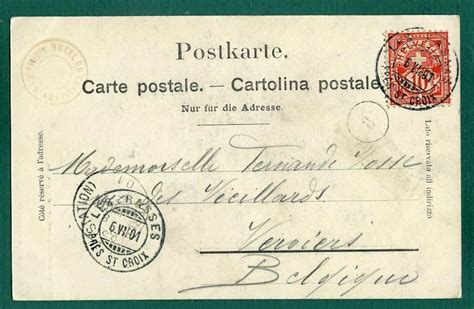 Postkarte.
Carte postale. — Cartolina postale.
Nur für die Adresse.
Côté réservé à l'adresse.
Lato riservato all' indirizzo
HELVETIA
10
6.VII.01
PRÈS ST CROIX
Mademoiselle Fernande
des Vieillards
Verviers
Belgique
LES RASSES
6.VII.01
PRÈS ST CROIX
(STATION)